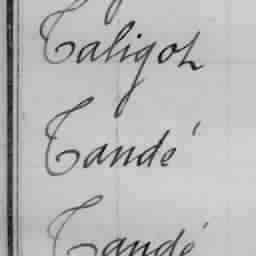 Taligot
Tandé
Tandé